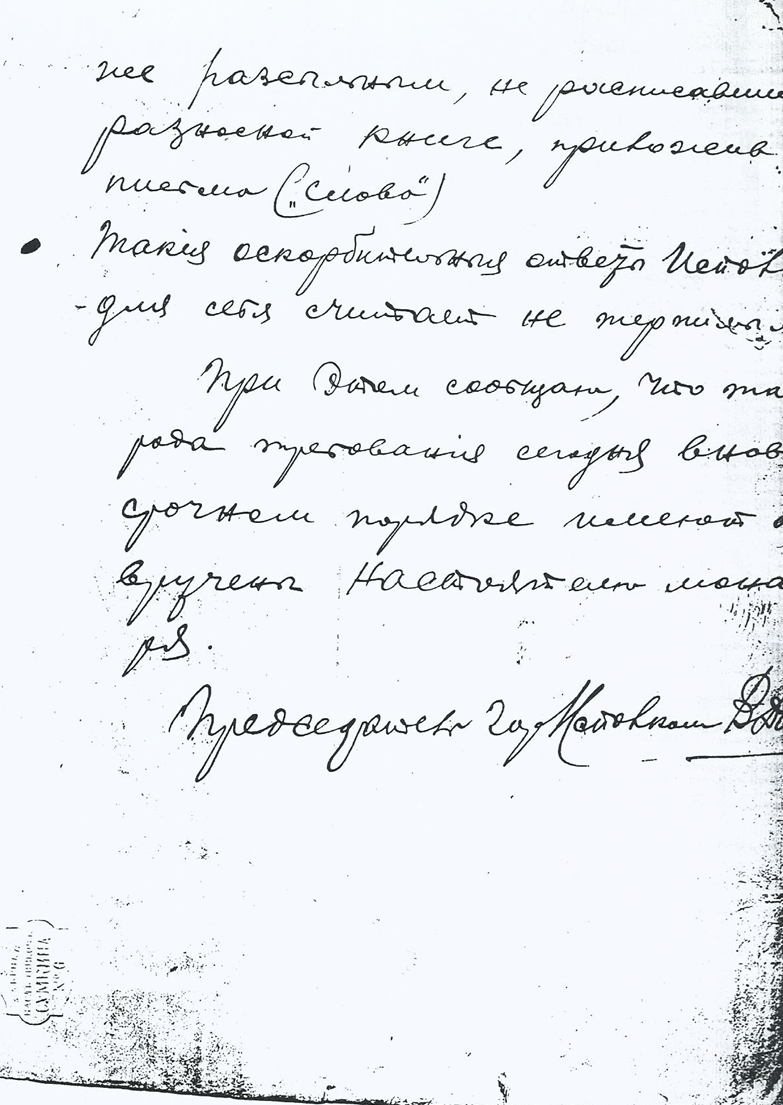 же разсыльным, не росписавши
разносной книге, приложив
письма („Слово“)
Такия оскорбительныя ответы Испол
для себя считает не терпимы
При этом сообщаю, что та
рода требования сегодня внов
срочном порядке имеют
вручены Настоятелю мона
ря.
Председатель Гор
СУМКИНА
№ 6